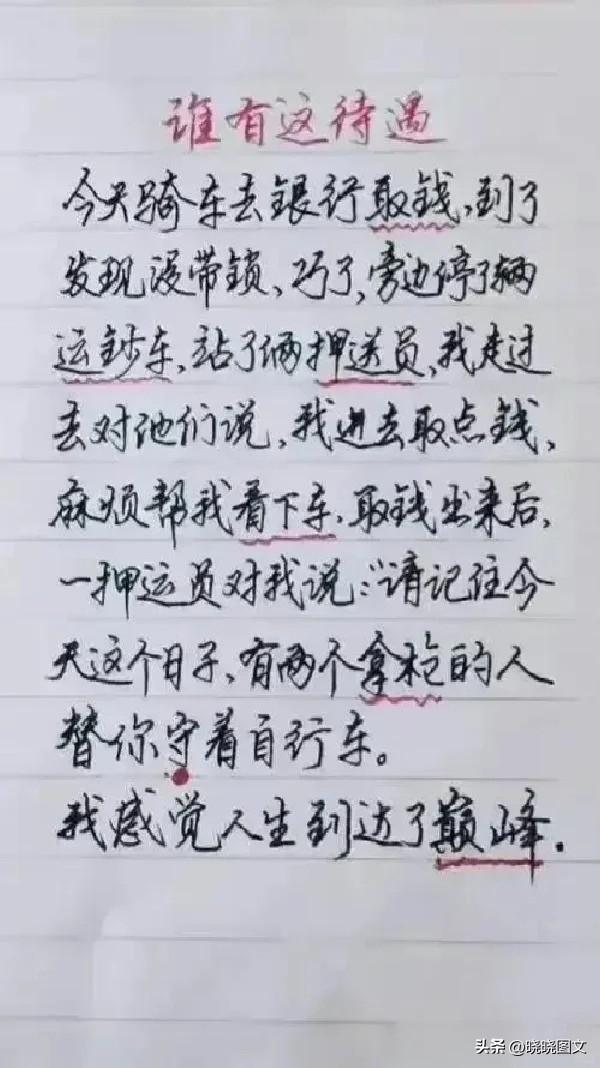 谁有这待遇
今天骑车去银行取钱,到了
发现没带锁、巧了,旁边停了辆
运钞车,站了俩押送员,我走过
去对他们说,我进去取点钱,
麻烦帮我看下车,取钱出来后,
一押运员对我说:“请记住今
天这个日子,有两个拿枪的人
替你守着自行车。
我感觉人生到达了巅峰.
头条 @晓晓图文